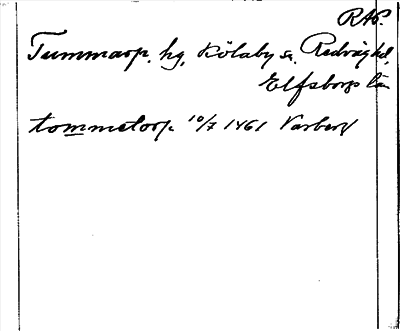 RAP.
Tummarp, hg, Kölaby sn, Redväg hd,
Elfsborgs län
tommetorp 10/7 1461 Varberg